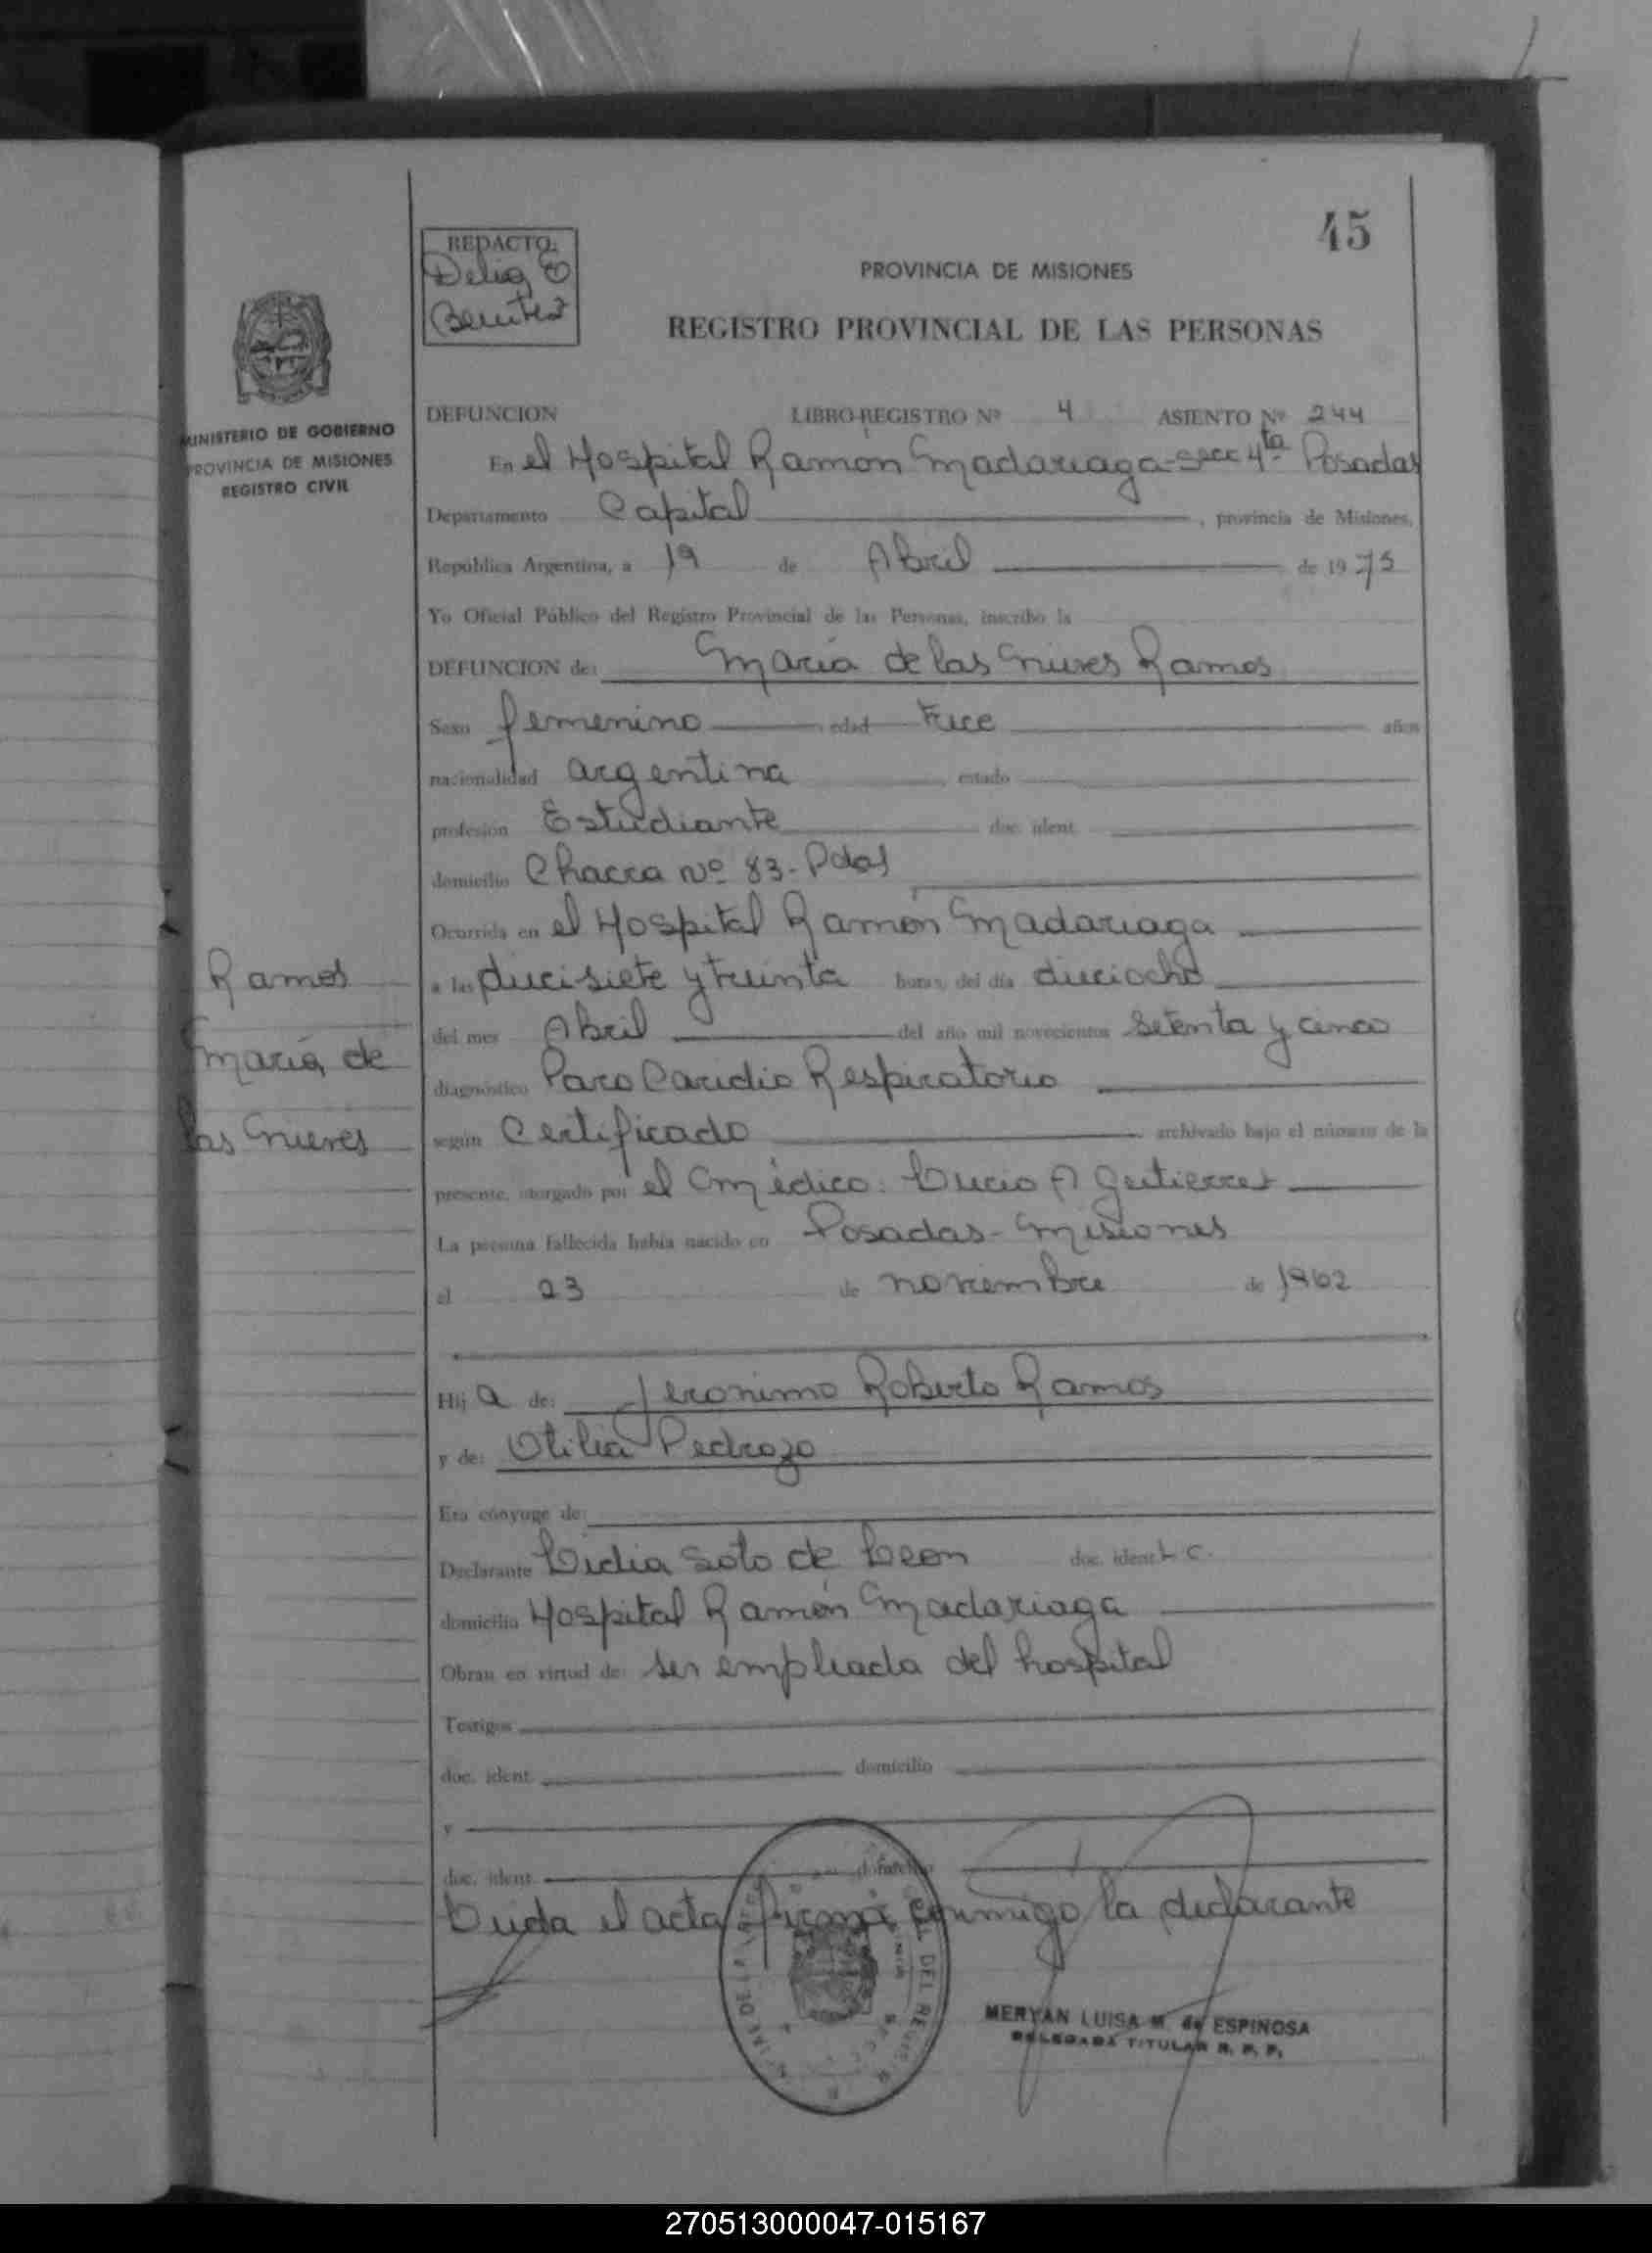 45
REDACTO:
Delia E
Benitez
PROVINCIA DE MISIONES
REGISTRO PROVINCIAL DE LAS PERSONAS
MINISTERIO DE GOBIERNO
PROVINCIA DE MISIONES
REGISTRO CIVIL
DEFUNCION LIBRO-REGISTRO Nº 4 ASIENTO Nº 244
En el Hospital Ramon Madariaga-secc 4ta Posadas
Departamento Capital, provincia de Misiones,
República Argentina, a 19 de Abril de 1975
Yo Oficial Público del Registro Provincial de las Personas, inscribo la
DEFUNCION de: Maria de las Nieves Ramos
Sexo femenino edad trece años
nacionalidad argentina, estado
profesion Estudiante doc. ident.
domicilio Chacra nº 83- Pdas
Ocurrida en el Hospital Ramón Madariaga
a las diecisiete y treinta horas, del día dieciocho
del mes Abril del año mil novecientos setenta y cinco
diagnóstico Paro Caridio Respiratorio
según Certificado archivado bajo el número de la
presente, otorgado por el Médico: Lucio A Gutierrez
La persona fallecida había nacido en Posadas- Misiones
el 23 de noviembre de 1962
Hij a de: Jeronimo Roberto Ramos
y de: Otilia Pedrozo
Era cónyuge de:
Declarante Lidia Soto de Leon doc. ident L C.
domicilio Hospital Ramón Madariaga
Obran en virtud de: ser empleada del hospital
Testigos
doc. ident. domicilio
y
doc. ident. domicilio
Leida el acta firma conmigo la declarante
Ramos
María de
las Nieves
MERYAN LUISA M. de ESPINOSA
DELEGADA TITULAR R. P. P.
270513000047-015167